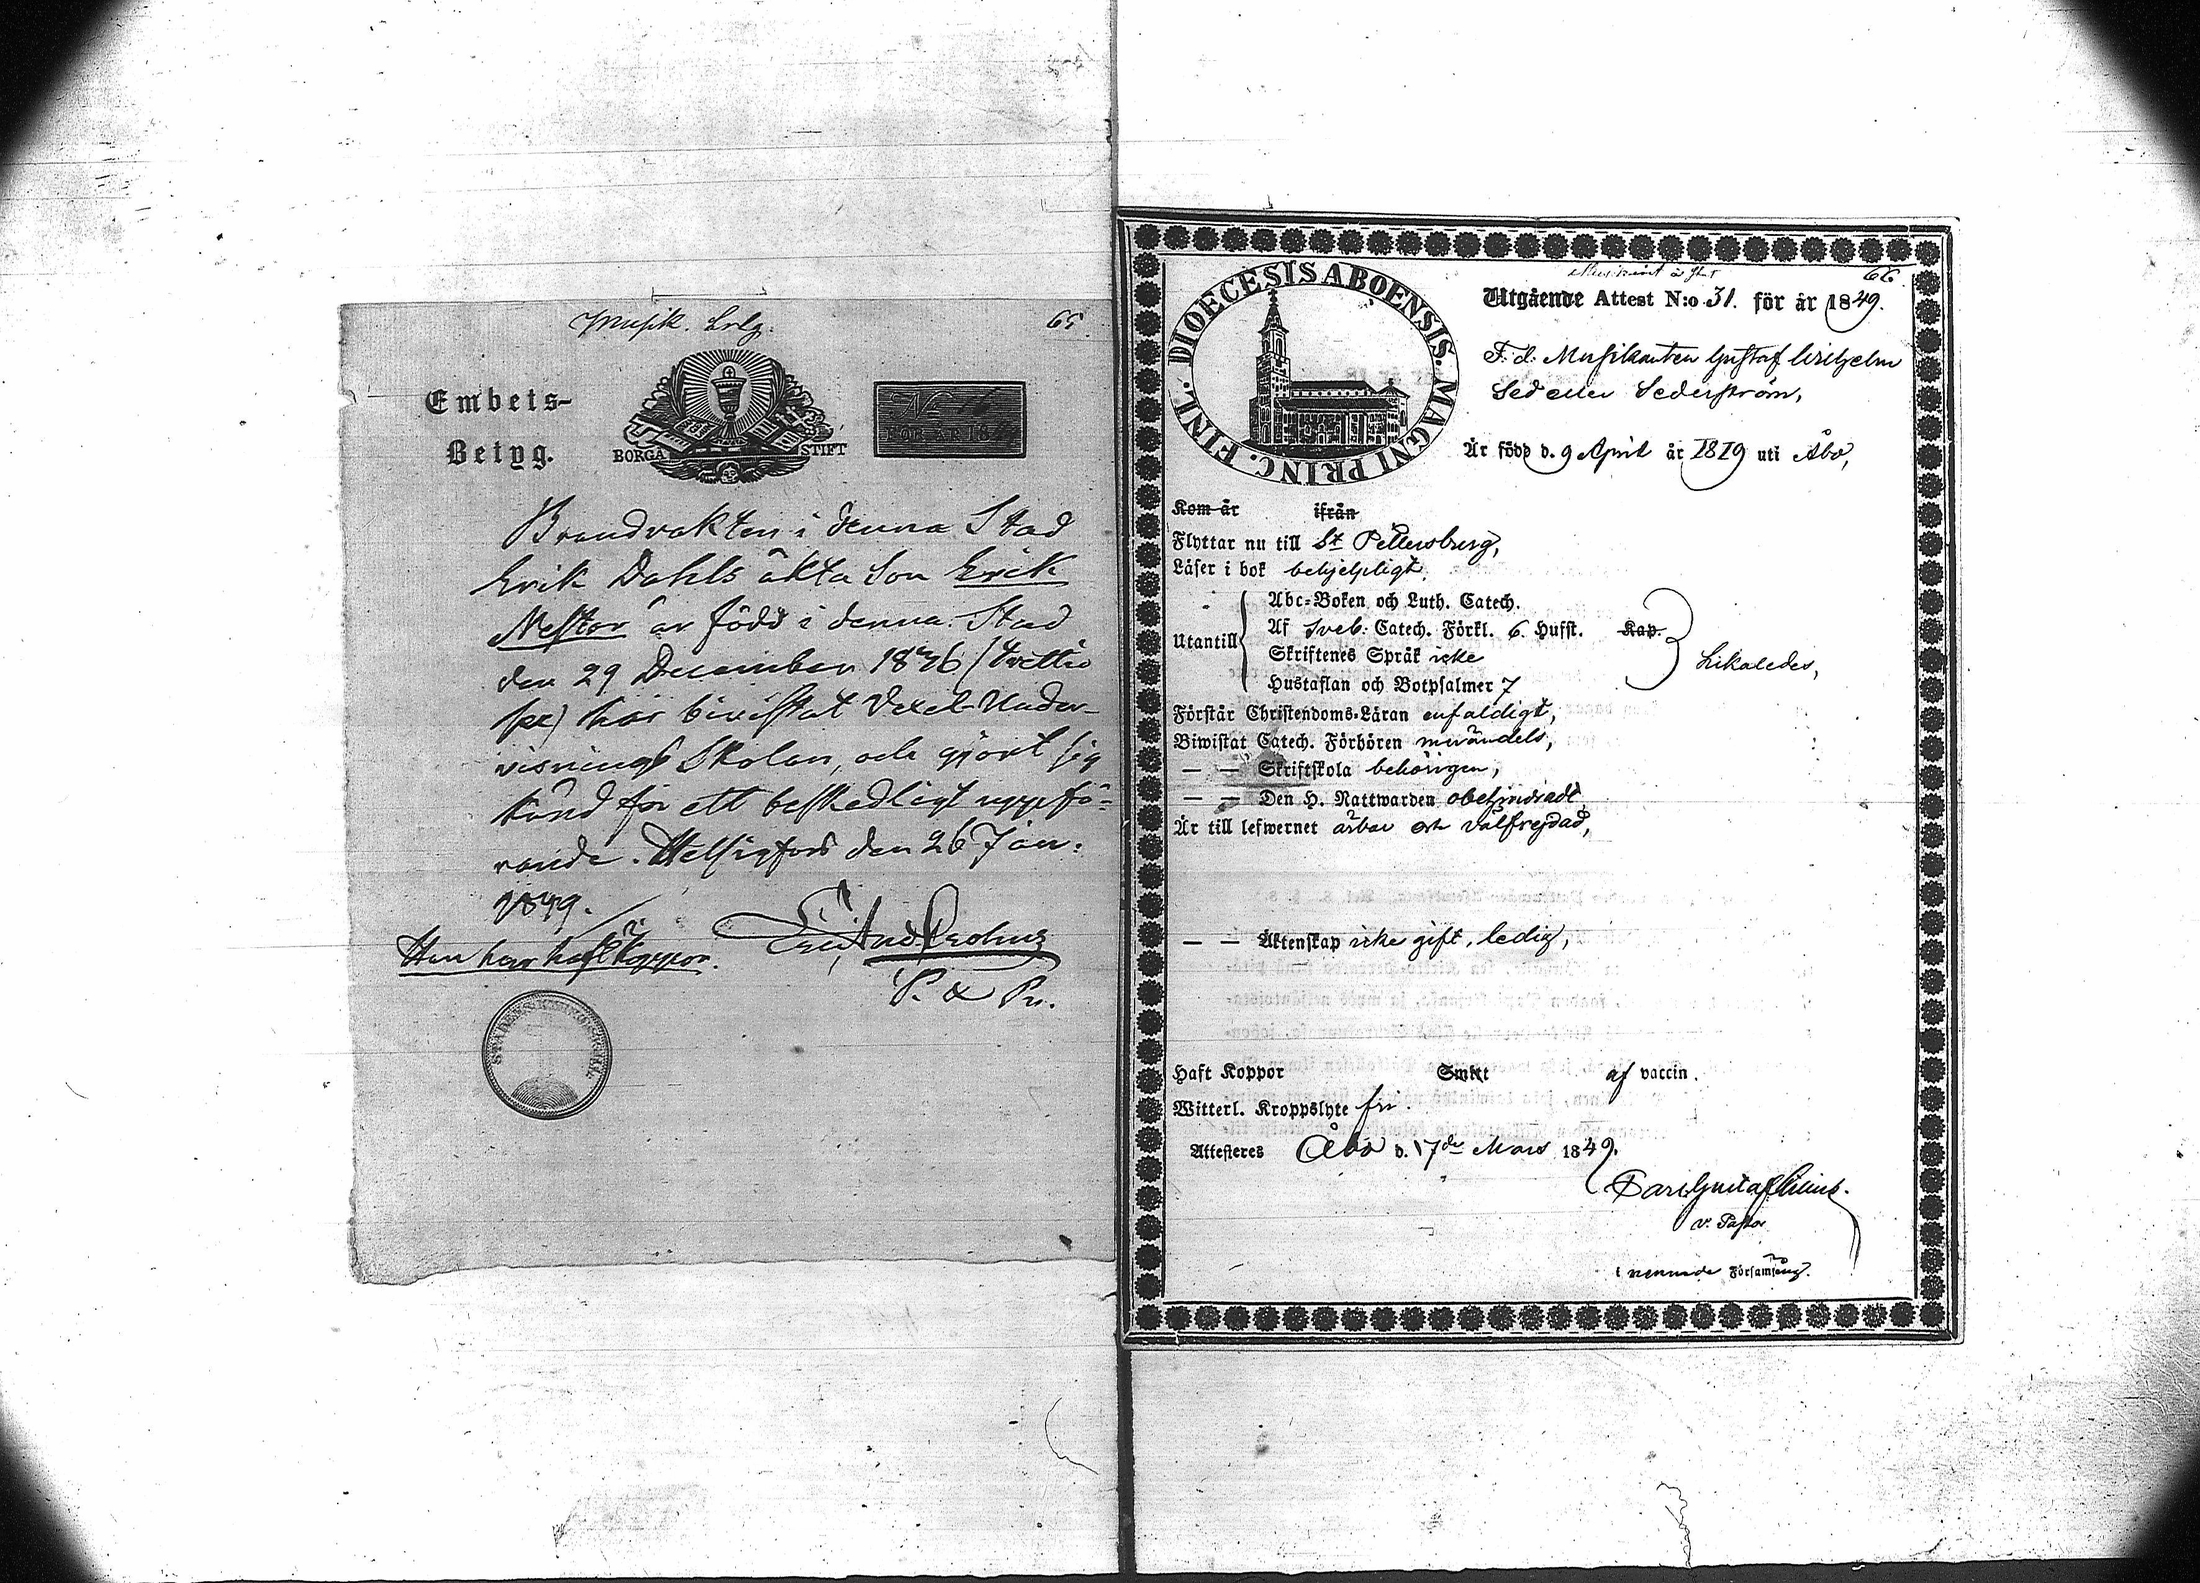 Musik. Lrlg.
65.
Embets-
Betyg.
BORGÅ STIFT
N:o 16
FÖR ÅR 18
Brandvakten i denna Stad
Erik Dahls äkta Son Erik
Nestor är född i denna Stad
den 29 December 1836 (trettio
sex) har bivistat Vexel-Under-
visnings Skolan, och gjort sig
känd för ett beskedligt uppfö-
rande. Helsingfors den 26 Jan.
1849.
Han har haft koppor.
P. & Pr.
STADENS
66.
DIOECESIS ABOENSIS. MAGNI PRINC. FINL.
Utgående Attest N:o 31. för år 1849.
F. d. Musikanten Gustaf Wilhelm
Sed eller Sederström,
Är född d. 9 April år 1819 uti Åbo,
Kom år ifrån
Flyttar nu till St Pettersburg,
Läser i bok behjelpligt,
Utantill
Abc-Boken och Luth. Catech.
Af Sveb. Catech. Förkl. 6. Hufst. Kap.
Skriftenes Språk icke
Hustaflan och Botpsalmer 7
Likaledes,
Förstår Christendoms-Läran enfaldigt,
Biwistat Catech. Förhören
— — Skriftskola behörigen,
— — Den H. Nattwarden obehindradt,
Är till lefwernet ärbar och välfrejdad,
— — Äktenskap icke gift, ledig,
Haft Koppor Smitt af vaccin.
Witterl. Kroppslyte fri.
Attesteres Åbo d. 17de Mars 1849.
v. Pastor
i nemnde Församling.